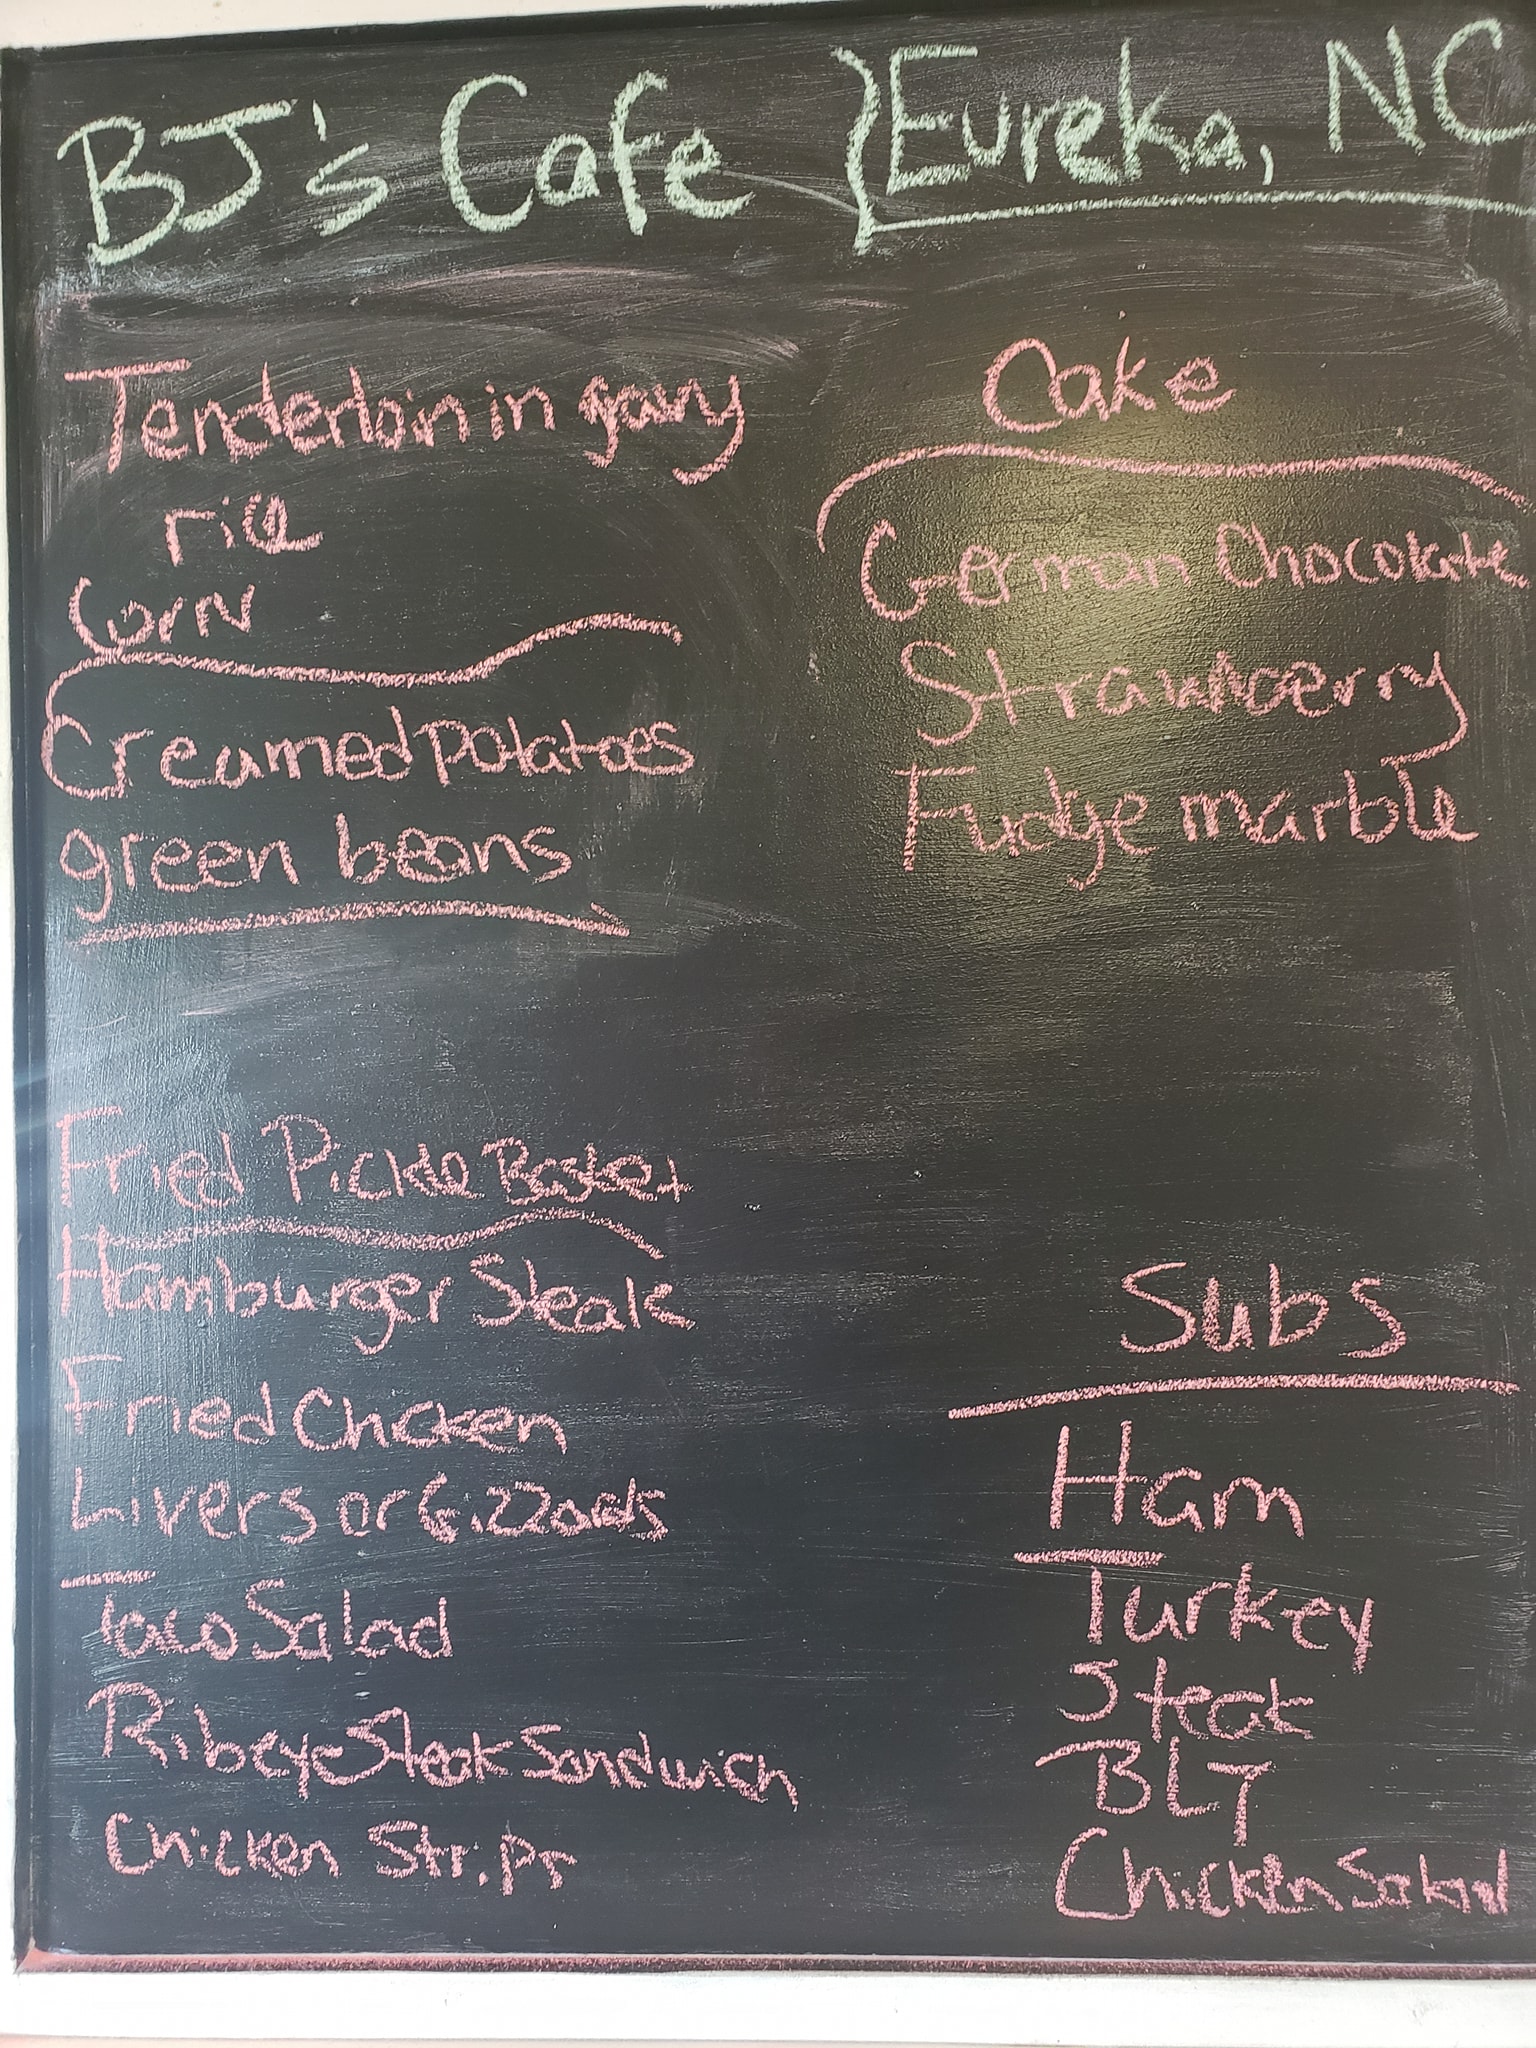 BJ's Cafe Eureka, NC
Tenderloin in gavy
rice
Corn
Creamed potatoes
green beans
Cake
German Chocolate
Strawberry
Fudge marble
Fried Pickle Basket
Hamburger Steak
Fried Chicken
Livers or Gizzards
Taco Salad
Ribeye Steak Sandwich
Chicken Strips
Subs
Ham
Turkey
Steak
BLT
Chicken Salad